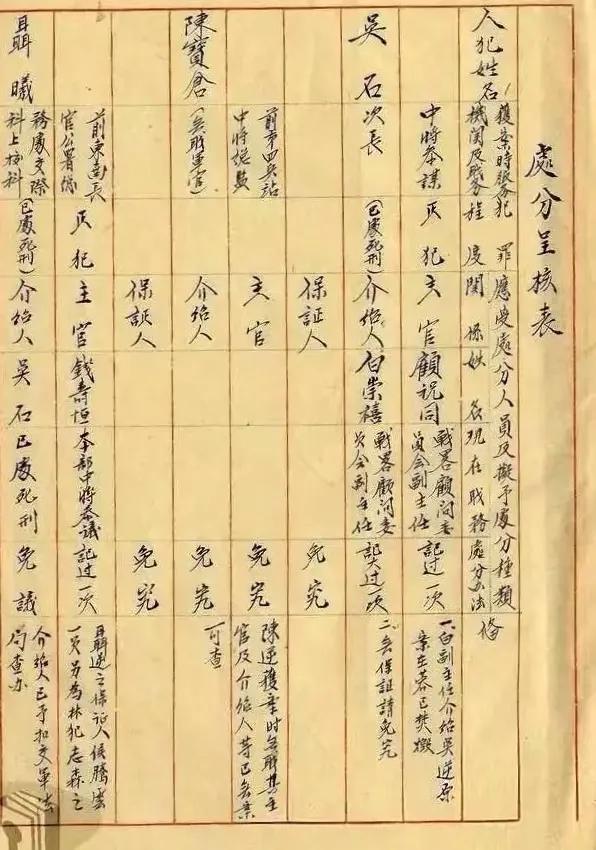 處分呈核表
人犯姓名
獲案時服務
機關及職務
犯罪
程度
應受處分人員及擬予處分種類
關係
姓名
現在職務
處分辦法
備
吳石
中將參謀
次長
正犯
(已處死刑)
主官
顧祝同
戰畧顧問委
員會副主任
記过一次
介紹人
白崇禧
戰畧顧問委
員會副主任
記大过一次
一、白副主任介紹吳逆原
案在蓉已焚燬
二、無保証請免究
保証人
免究
陳寶倉
前第四兵站
中將總監
(無職軍官)
主官
免究
陳逆獲案時無職其主
官及介紹人等已無案
可查
介紹人
免究
保証人
免究
聶曦
前東南長
官公署總
務處交際
科上校科
正犯
(已處死刑)
主官
錢壽恒
本部中將參議
記过一次
聶逆之保証人侯騰雲
一員另為林犯志森之
介紹人已予扣交軍法
局查办
介紹人
吳石
已處死刑
免議